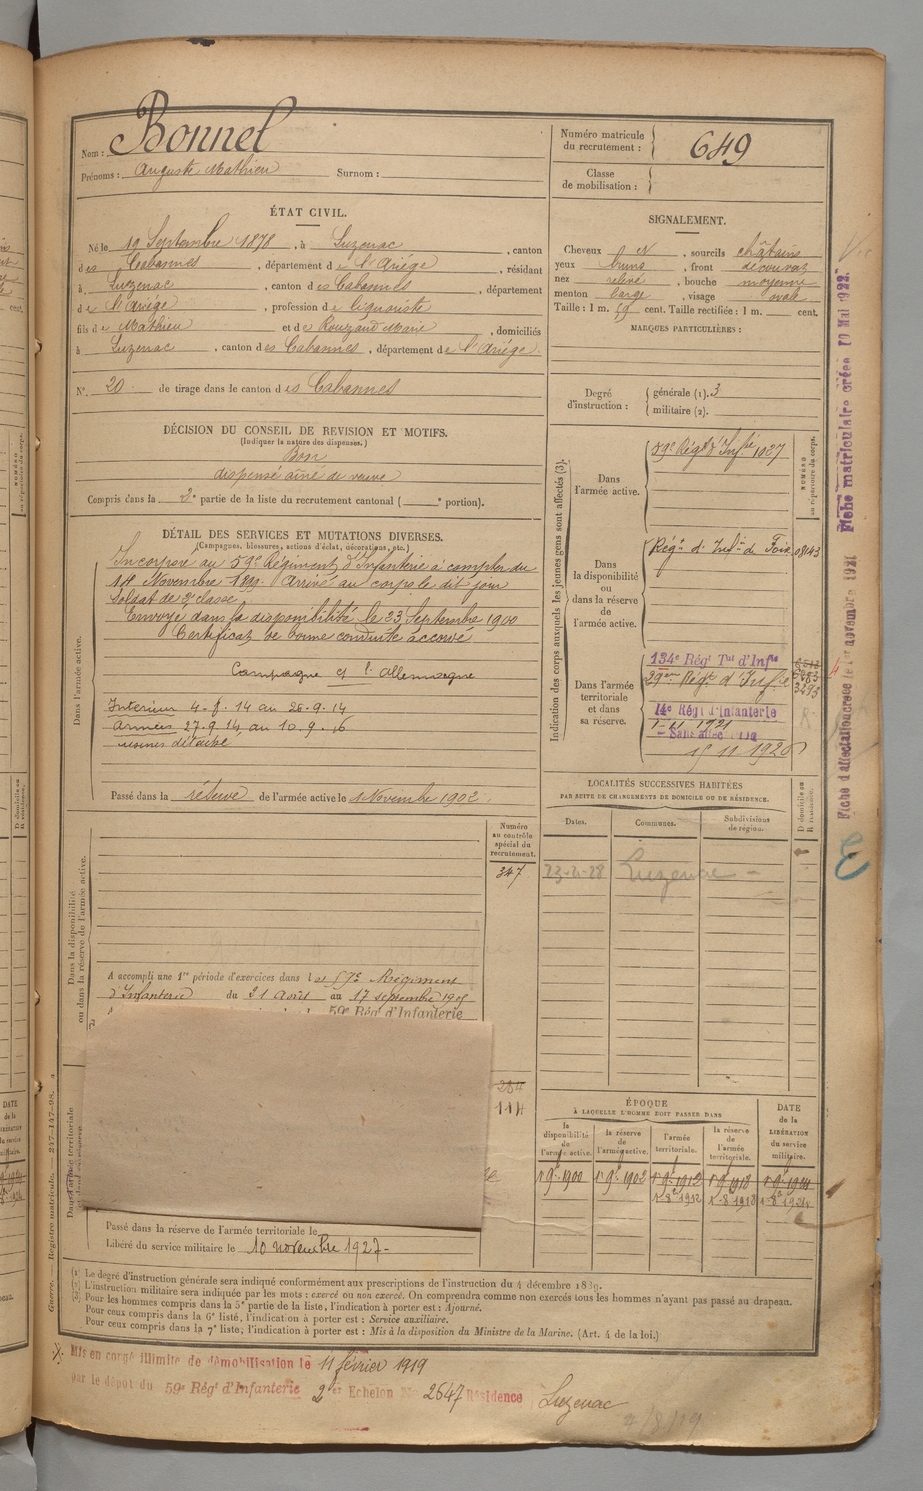 Nom : Bonnel
Prénoms : Auguste Mathieu Surnom :
Numéro matricule du recrutement : 649
Classe de mobilisation :
ÉTAT CIVIL.
Né le 19 Septembre 1878, à Luzenac, canton
des Cabannes, département de l'Ariége, résidant
à Luzenac, canton des Cabannes, département
de l'Ariége, profession de
fils de Mathieu et de Rouzaud Marie, domiciliés
à Luzenac, canton des Cabannes, département de l'Ariége.
N° 20 de tirage dans le canton des Cabannes
SIGNALEMENT.
Cheveux N, sourcils châtains
yeux bruns, front découvert
nez relevé, bouche moyenne
menton large, visage ovale
Taille : 1 m. 59 cent. Taille rectifiée : 1 m. cent.
MARQUES PARTICULIÈRES :
Degré d'instruction : générale (1). 3
militaire (2).
DÉCISION DU CONSEIL DE REVISION ET MOTIFS.
(Indiquer la nature des dispenses.)
Bon
dispensé aîné de veuve
Compris dans la 2e partie de la liste du recrutement cantonal ( e portion).
DÉTAIL DES SERVICES ET MUTATIONS DIVERSES.
(Campagnes, blessures, actions d'éclat, décorations, etc.)
Dans l'armée active.
Incorporé au 59e Régiment d'Infanterie à compter du
14 Novembre 1899. Arrivé au corps le dit jour
Soldat de 2e classe.
Envoyé dans la disponibilité le 23 Septembre 1900
Certificat de bonne conduite accordé
Campagne c/ l'Allemagne
Intérieur 4-8-14 au 26-9-14
Armées 27-9-14 au 10-9-16
usines détaché
Passé dans la réserve de l'armée active le 1 Novembre 1902.
Indication des corps auxquels les jeunes gens sont affectés (3).
NUMÉRO au répertoire du corps.
Dans l'armée active.
59e Régt d'Infie 1027
Dans la disponibilité ou dans la réserve de l'armée active.
Régt d'Infie de Foix 08143
Dans l'armée territoriale et dans sa réserve.
134e Régt Tal d'Infie
Régt d'Infie 3293
14e Régt d'Infanterie
1-11 1921
15 11 1926
LOCALITÉS SUCCESSIVES HABITÉES
PAR SUITE DE CHANGEMENTS DE DOMICILE OU DE RÉSIDENCE.
Dates. Communes. Subdivisions de région. D domicile ou R résidence.
Luzenac
Dans la disponibilité ou dans la réserve de l'armée active.
Numéro au contrôle spécial du recrutement.
347
A accompli une 1re période d'exercices dans le 59e Régiment
d'Infanterie du 21 Août au 17 septembre 1905
59e Régt d'Infanterie
284
114
Passé dans la réserve de l'armée territoriale le
Libéré du service militaire le 10 novembre 1927-
ÉPOQUE
À LAQUELLE L'HOMME DOIT PASSER DANS
la disponibilité de l'armée active. la réserve de l'armée active. l'armée territoriale. la réserve de l'armée territoriale. DATE de la LIBÉRATION du service militaire.
1 9e 1900 1 9e 1902 1 9e 1912 1 9e 1918 1 9e 1924
1-8e 1912 1-8e 1918 1-8e 1924
(1) Le degré d'instruction générale sera indiqué conformément aux prescriptions de l'instruction du 4 décembre 1889.
(2) L'instruction militaire sera indiquée par les mots : exercé ou non exercé. On comprendra comme non exercés tous les hommes n'ayant pas passé au drapeau.
(3) Pour les hommes compris dans la 5e partie de la liste, l'indication à porter est : Ajourné.
Pour ceux compris dans la 6e liste, l'indication à porter est : Service auxiliaire.
Pour ceux compris dans la 7e liste, l'indication à porter est : Mis à la disposition du Ministre de la Marine. (Art. 4 de la loi.)
Mis en congé illimité de démobilisation le 11 février 1919
par le dépôt du 59e Régt d'Infanterie 2er Echelon No 2647 Résidence Luzenac
Guerre. — Registre matricule. — 247-147-98.
Fiche d'affectation créée le 1er novembre 1921 Fiche matriculaire créée 10 Mai 1922.